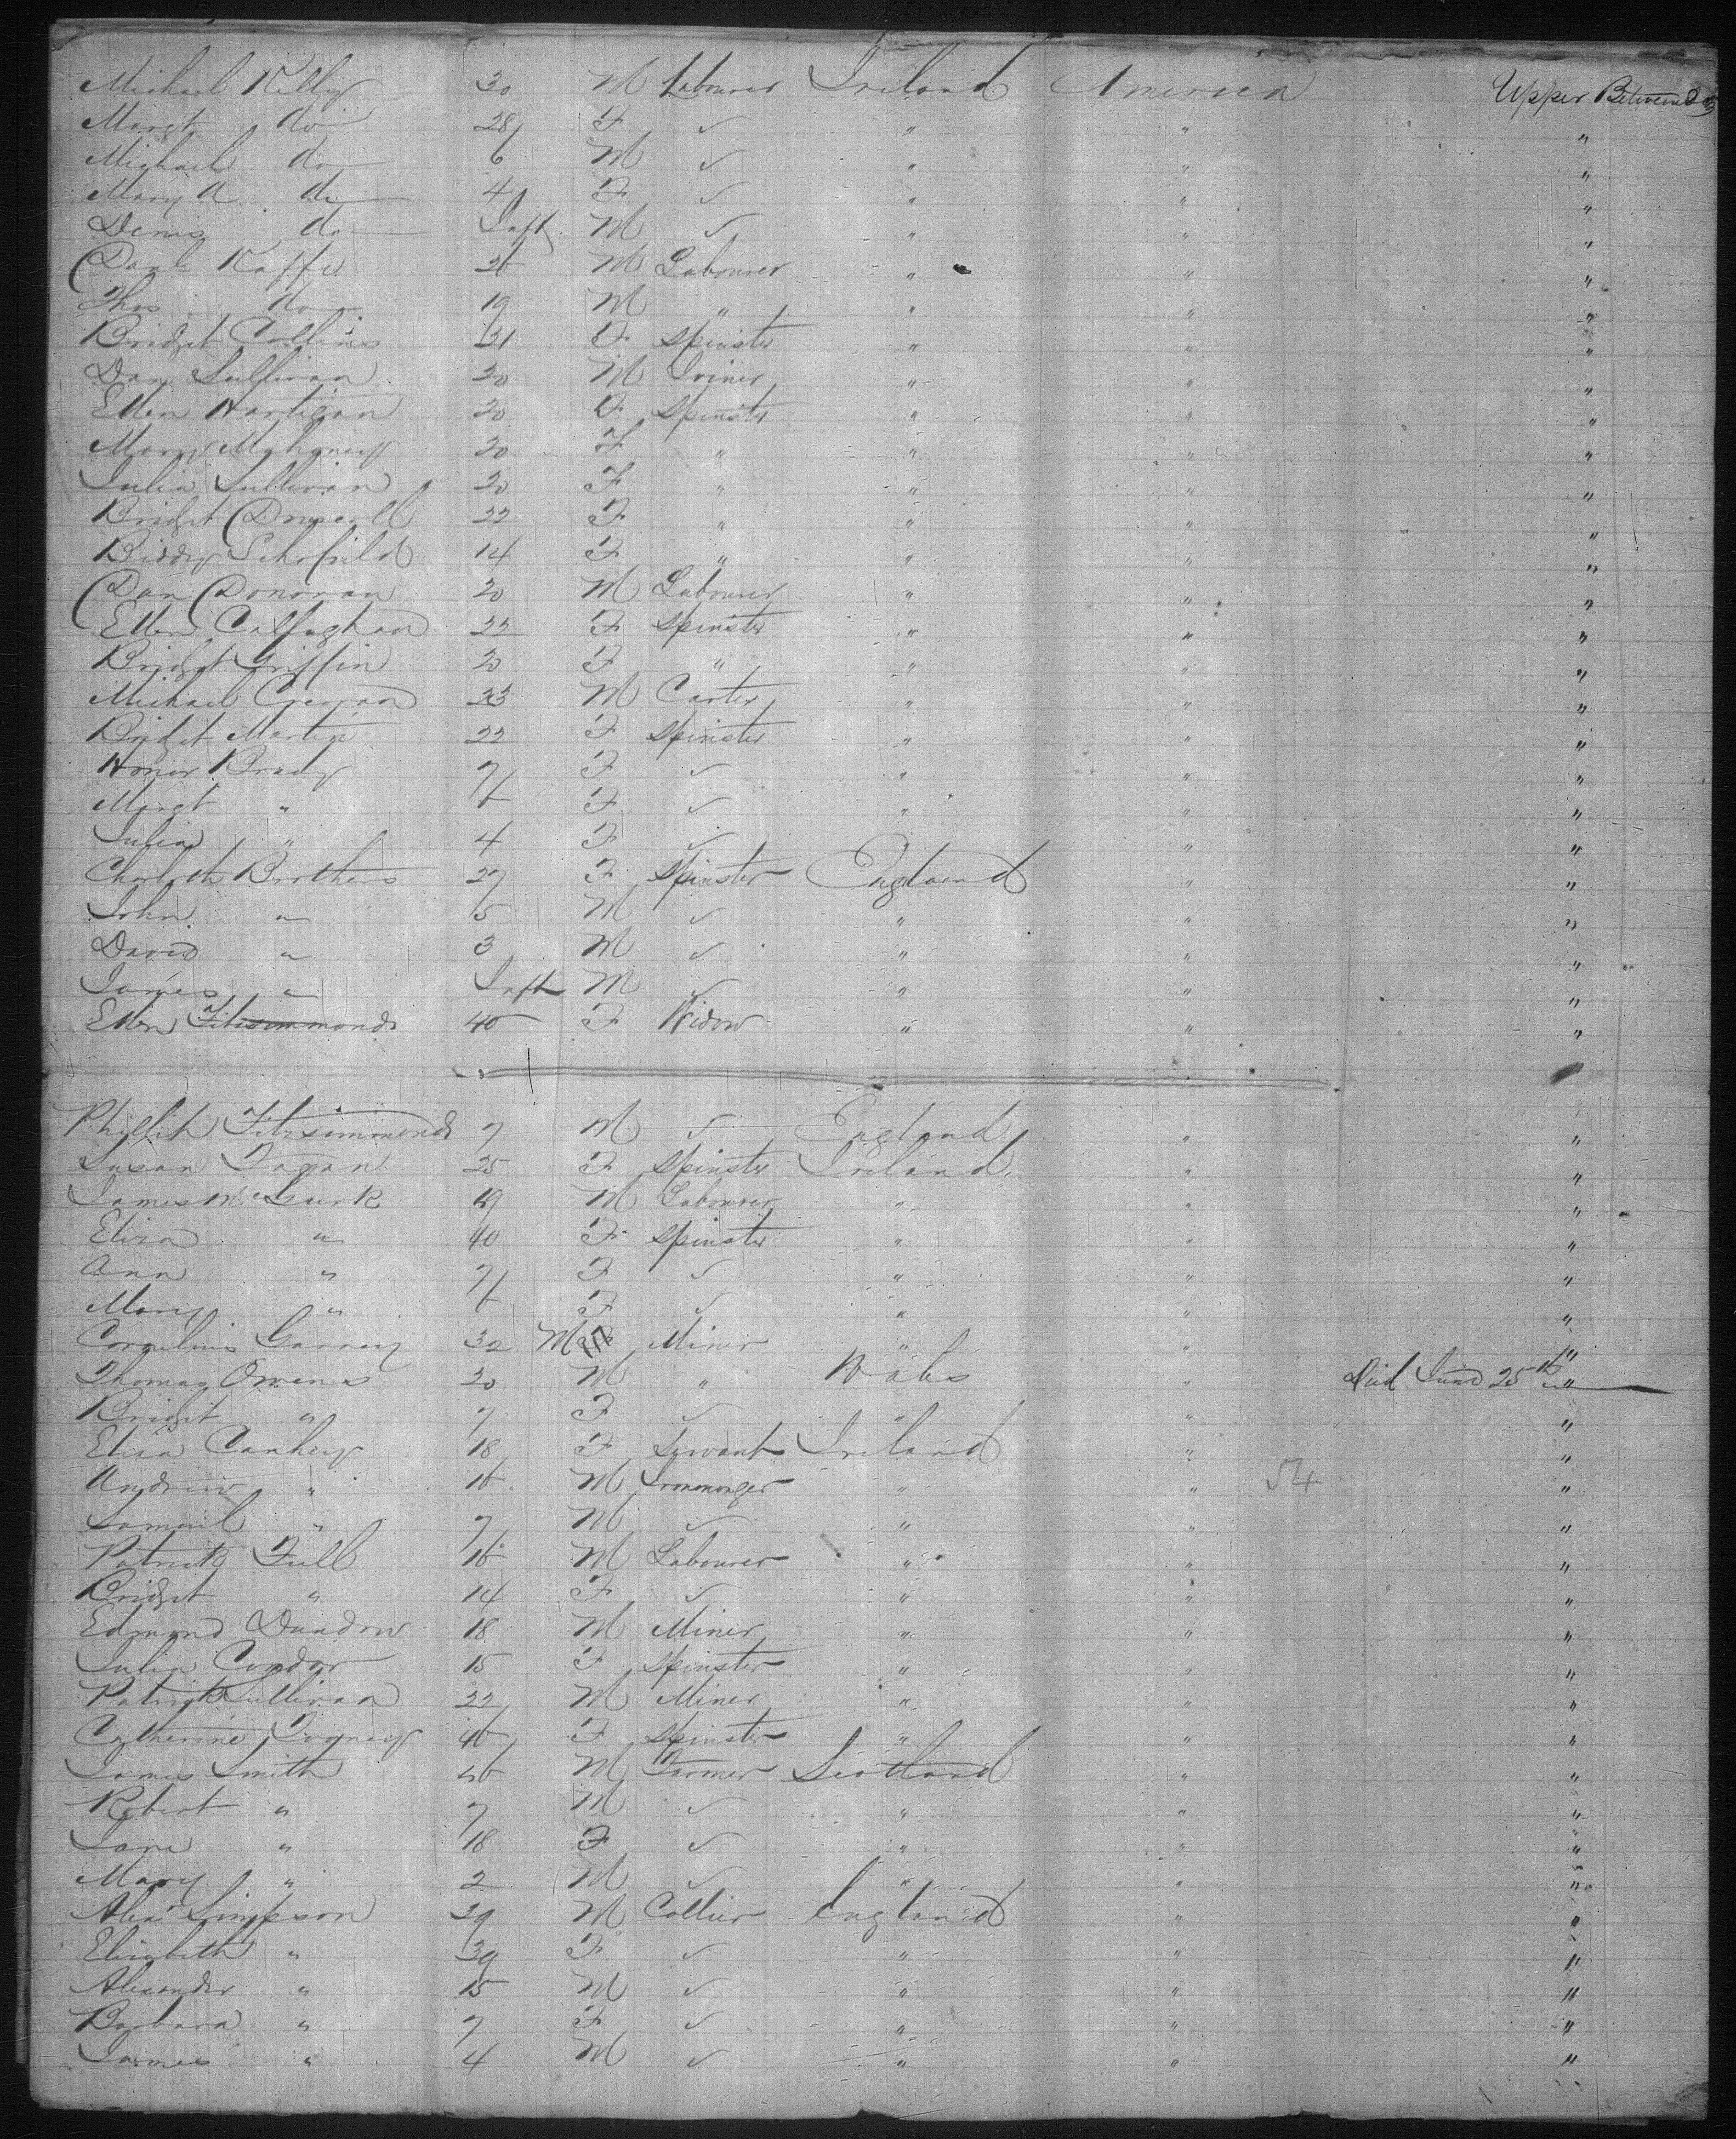 Michael Kelly 30 M Labourer Ireland America Upper Between Dks
Margt do 28 F ✓ " " "
Michael do 6 M ✓ " " "
Mary A do 4 F ✓ " " "
Denis do Inft M ✓ " " "
Danl Kaffe 26 M Labourer " " "
Thos do 19 M " " " "
Bridget Collins 31 F Spinster " " "
Dan Sullivan 20 M Joiner " " "
Ellen Hartigan 20 F Spinster " " "
Mary Mahoney 20 F " " " "
Julia Sullivan 20 F " " " "
Bridget Driscoll 22 F " " " "
Biddy Schofield 14 F " " " "
Dan Donovan 20 M Labourer " " "
Ellen Callaghan 22 F Spinster " " "
Bridget Griffin 20 F " " " "
Michael 23 M Carter " " "
Bridget Martin 22 F Spinster " " "
Honor Brady 7 F ✓ " " "
Margt " 6 F ✓ " " "
Julia " 4 F ✓ " " "
Charloth Brothers 27 F Spinster England " "
John " 5 M ✓ " " "
David " 3 M ✓ " " "
James " Inft M ✓ " " "
Ellen Fitzsimmonds 40 F Widow " " "
Phillip Fitzsimmonds 7 M ✓ England " "
Susan Fagan 25 F Spinster Ireland " "
James McGurk 19 M Labourer " " "
Eliza " 40 F Spinster " " "
Ann " 7 F ✓ " " "
Mary " 6 F ✓ " " "
Cornelius Garvey 32 M Miner " " "
Thomas Owens 20 M " Wales " Died June 25th "
Bridget " 7 F ✓ " " "
Eliza Canhey 18 F Servant Ireland " "
Andrew " 16 M Ironmonger " " 54 "
Samuel " 7 M ✓ " " "
Patrick Full 16 M Labourer " " "
Bridget " 14 F ✓ " " "
Edmond Dundon 18 M Miner " " "
Julia Condor 15 F Spinster " " "
Patrick Sullivan 22 M Miner " " "
Catherine 46 F Spinster " " "
James Smith 46 M Farmer Scotland " "
Robert " 7 M ✓ " " "
Jane " 18 F ✓ " " "
Mary " 2 M ✓ " " "
Alexr Simpson 39 M Collier England " "
Elizabeth " 39 F ✓ " " "
Alexander " 15 M ✓ " " "
Barbara " 7 F ✓ " " "
James " 4 M ✓ " " "